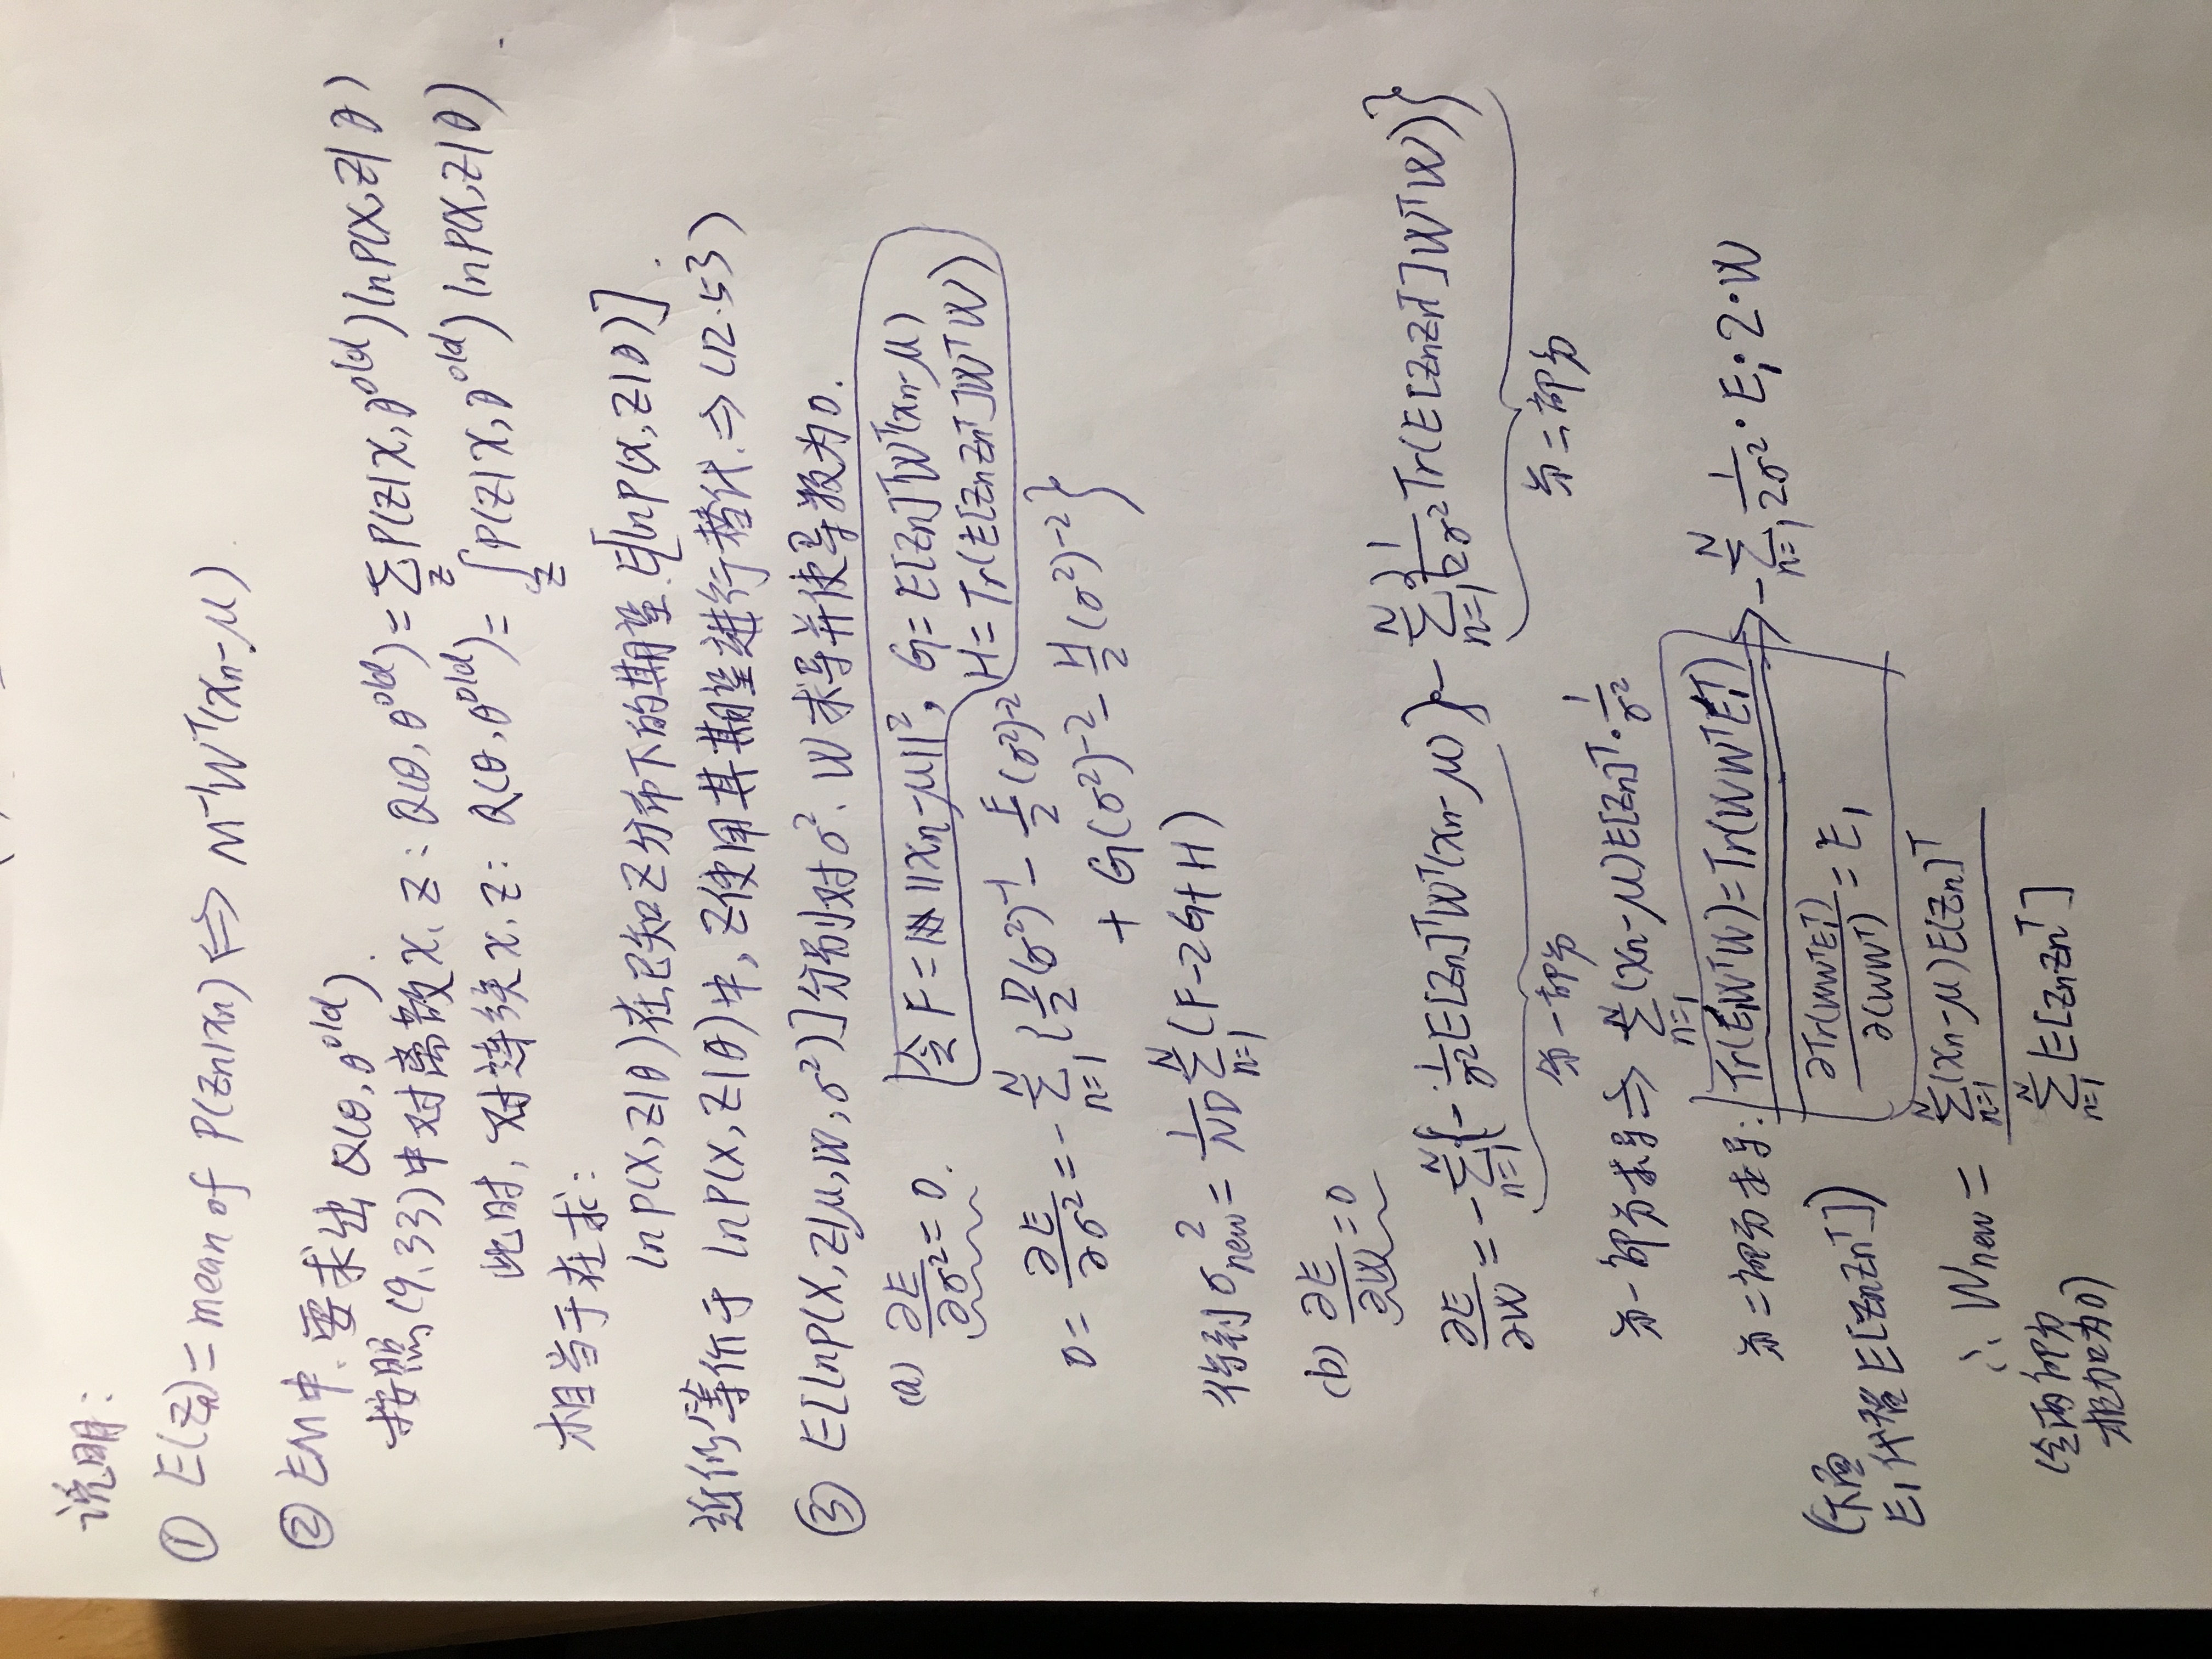 说明:
① E(Zn) = mean of P(Zn|xn) ⇔ M⁻¹Wᵀ(xn-μ).
② EM中.要求出 Q(θ,θ^old).
按照(9.33)中对离散 x, z: Q(θ,θ^old)=∑_Z P(Z|X,θ^old) ln P(X,Z|θ)
此时,对连续 x, z: Q(θ,θ^old)=∫_Z P(Z|X,θ^old) ln P(X,Z|θ).
相当于在求:
ln P(X,Z|θ)在已知Z分布下的期望 E[ln P(X,Z|θ)].
近似等价于 ln P(X,Z|θ)中,Z使用其期望进行替代.⇒(12.53)
③ E[ln P(X,Z|μ,W,σ²)]分别对σ²、W求导并使导数为0.
(a) ∂E/∂σ² = 0.
令 F = ||xn-μ||², G = E[Zn]ᵀWᵀ(xn-μ)
H = Tr(E[ZnZnᵀ]WᵀW)
0 = ∂E/∂σ² = -∑_{n=1}^N {D/2(σ²)⁻¹ - F/2(σ²)⁻²
+ G(σ²)⁻² - H/2(σ²)⁻²}
得到 σ²_new = 1/ND ∑_{n=1}^N (F-2G+H)
(b) ∂E/∂W = 0
∂E/∂W = -∑_{n=1}^N {-1/σ² E[Zn]ᵀWᵀ(xn-μ)} - ∑_{n=1}^N {1/2σ² Tr(E[ZnZnᵀ]WᵀW)}
第一部分 第二部分
第一部分求导⇒ ∑_{n=1}^N (xn-μ)E[Zn]ᵀ·1/σ²
第二部分求导: Tr(E₁WᵀW)=Tr(WWᵀE₁ᵀ) → -∑_{n=1}^N 1/2σ²·E₁·2·W
∂Tr(WWᵀE₁ᵀ)/∂(WWᵀ) = E₁
(下面
E₁代替E[ZnZnᵀ])
∴ Wnew = ∑_{n=1}^N (xn-μ)E[Zn]ᵀ / ∑_{n=1}^N E[ZnZnᵀ]
(令两部分
相加为0)